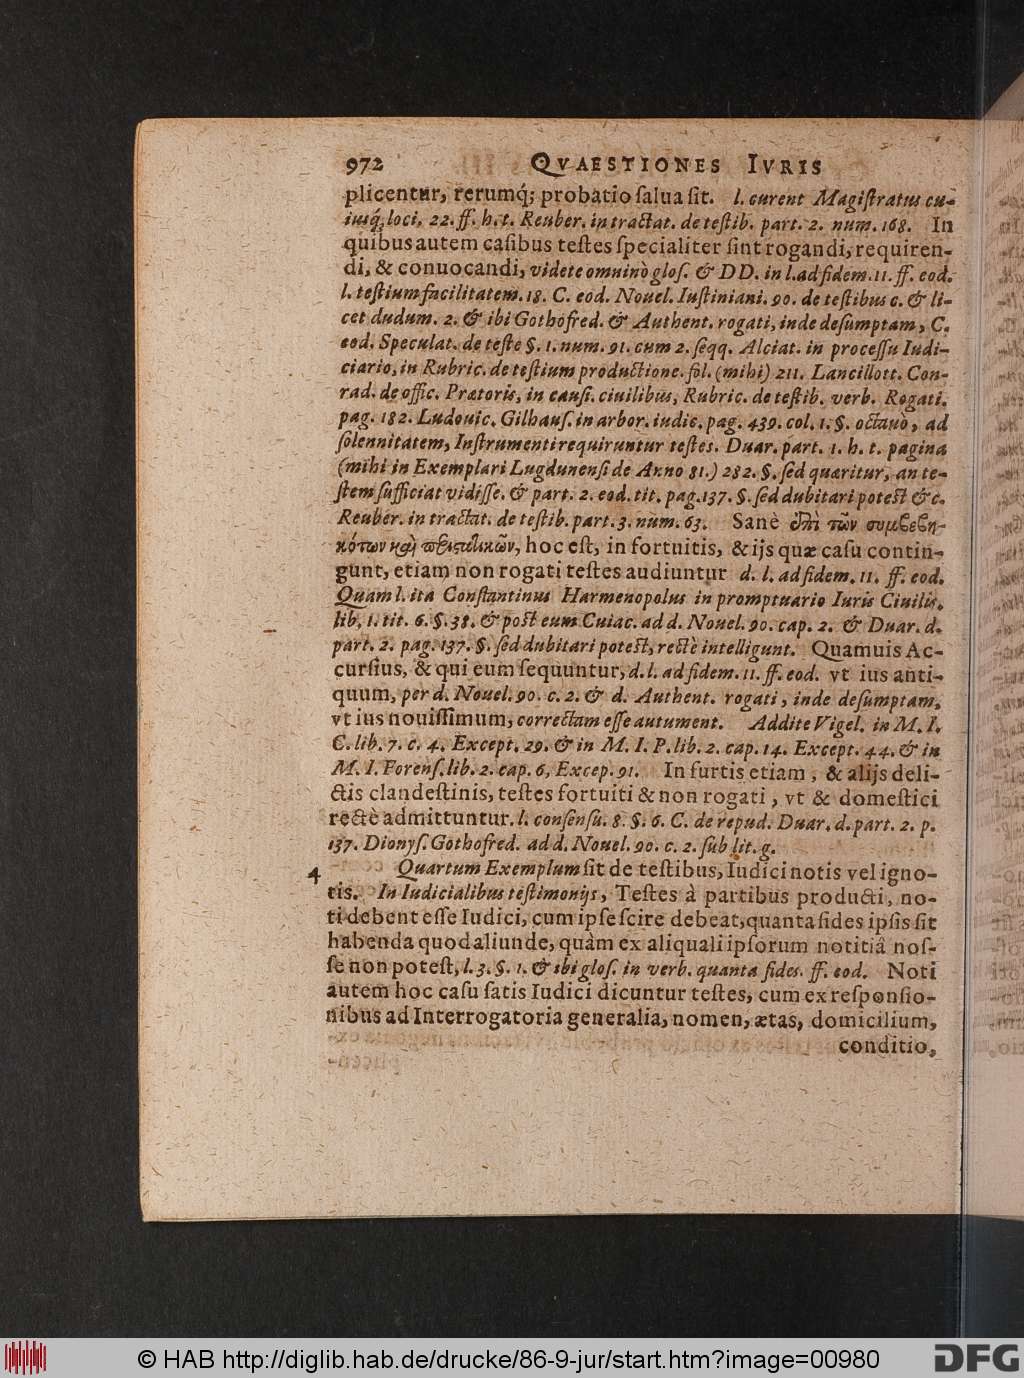 972 QVAESTIONES IVRIS
plicentur, rerumq́; probatio ſalua ſit. l. curent Magiſtratus cu-
iusq́; loci, 22. ff. h. t. Reuber. in tractat. de teſtib. part. 2. num. 168. In
quibus autem caſibus teſtes ſpecialiter ſint rogandi, requiren-
di, & conuocandi, videte omninò gloſ. & DD. in l. ad fidem. 11. ff. eod.
l. teſtium facilitatem. 18. C. eod. Nouel. Iuſtiniani. 90. de teſtibus c. & li-
cet dudum. 2. & ibi Gothofred. & Authent. rogati, inde deſumptam, C.
eod. Speculat. de teſte §. 1. num. 91. cum 2. ſeqq. Alciat. in proceſſu Iudi-
ciario, in Rubric. de teſtium productione. fol. (mihi) 211. Lancillott. Con-
rad. de offic. Prætoris, in cauſ. ciuilibus, Rubric. de teſtib. verb. Rogati.
pag. 182. Ludouic. Gilhauſ. in arbor. iudic. pag. 439. col. 1. §. octauò, ad
ſolennitatem, Inſtrumenti requiruntur teſtes. Duar. part. 1. h. t. pagina
(mihi in Exemplari Lugdunenſi de Anno 81.) 282. §. ſed quæritur, an te-
ſtem ſufficiat vidiſſe. & part. 2. eod. tit. pag. 137. §. ſed dubitari poteſt & c.
Reuber. in tractat. de teſtib. part. 3. num. 63. Sanè ἐπὶ τῶν συμβεβη-
κότων καὶ περιστατικῶν, hoc eſt, in fortuitis, & ijs quæ caſu contin-
gunt, etiam non rogati teſtes audiuntur d. l. ad fidem. 11. ff. eod.
Quam l. ita Conſtantinus Harmenopolus in promptuario Iuris Ciuilis.
lib. 1. tit. 6. §. 38. & poſt eum Cuiac. ad d. Nouel. 90. cap. 2. & Duar. d.
part. 2. pag. 137. §. ſed dubitari poteſt, rectè intelligunt. Quamuis Ac-
curſius, & qui eum ſequuntur, d. l. ad fidem. 11. ff. eod. vt ius anti-
quum, per d. Nouel. 90. c. 2. & d. Authent. rogati, inde deſumptam,
vt ius nouiſſimum, correctam eſſe autument. Addite Vigel. in M. I.
C. lib. 7. c. 4. Except. 29. & in M. I. P. lib. 2. cap. 14. Except. 44. & in
M. I. Forenſ. lib. 2. cap. 6, Excep. 91. In furtis etiam, & alijs deli-
ctis clandeſtinis, teſtes fortuiti & non rogati, vt & domeſtici
rectè admittuntur. l. conſenſu. 8. §. 6. C. de repud. Duar. d. part. 2. p.
137. Dionyſ. Gothofred. ad d. Nouel. 90. c. 2. ſub lit. g.
4 Quartum Exemplum ſit de teſtibus, Iudici notis vel igno-
tis. In Iudicialibus teſtimonijs, Teſtes à partibus producti, no-
ti debent eſſe Iudici, cum ipſe ſcire debeat, quanta fides ipſis ſit
habenda quod aliunde, quàm ex aliquali ipſorum notitiâ noſ-
ſe non poteſt, l. 3. §. 1. & ibi gloſ. in verb. quanta fides. ff. eod. Noti
autem hoc caſu ſatis Iudici dicuntur teſtes, cum ex reſponſio-
nibus ad Interrogatoria generalia, nomen, ætas, domicilium,
conditio,
© HAB http://diglib.hab.de/drucke/86-9-jur/start.htm?image=00980
DFG